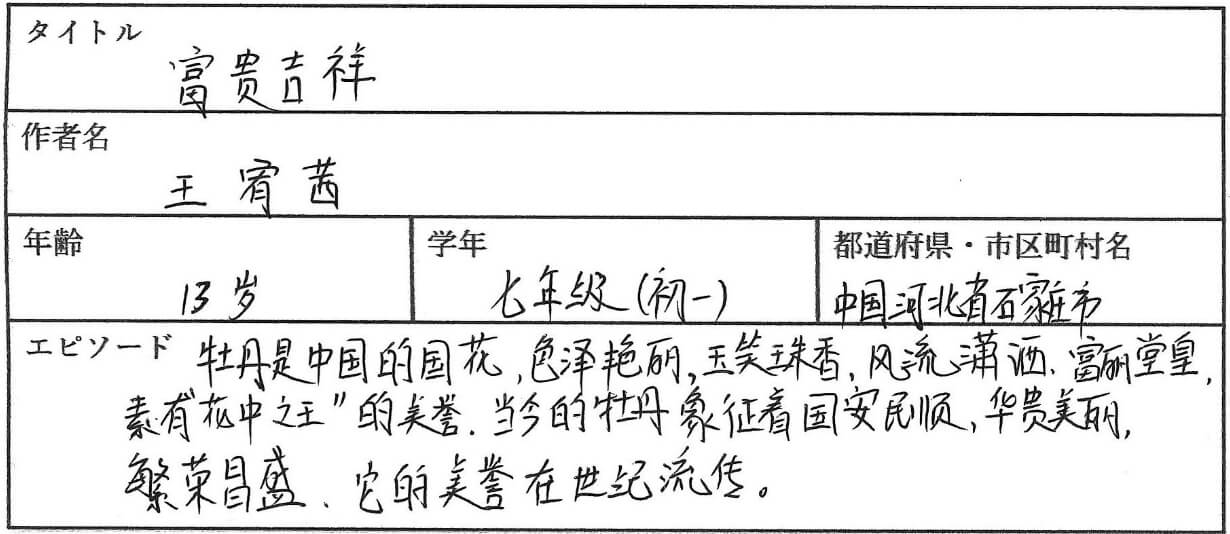 タイトル
富贵吉祥
作者名
王宥茜
年齢
13岁
学年
七年级(初一)
都道府県・市区町村名
中国河北省石家庄市
エピソード 牡丹是中国的国花,色泽艳丽,玉笑珠香,风流潇洒、富丽堂皇,
素有"花中之王"的美誉.当今的牡丹象征着国安民顺,华贵美丽,
繁荣昌盛、它的美誉在世纪流传。